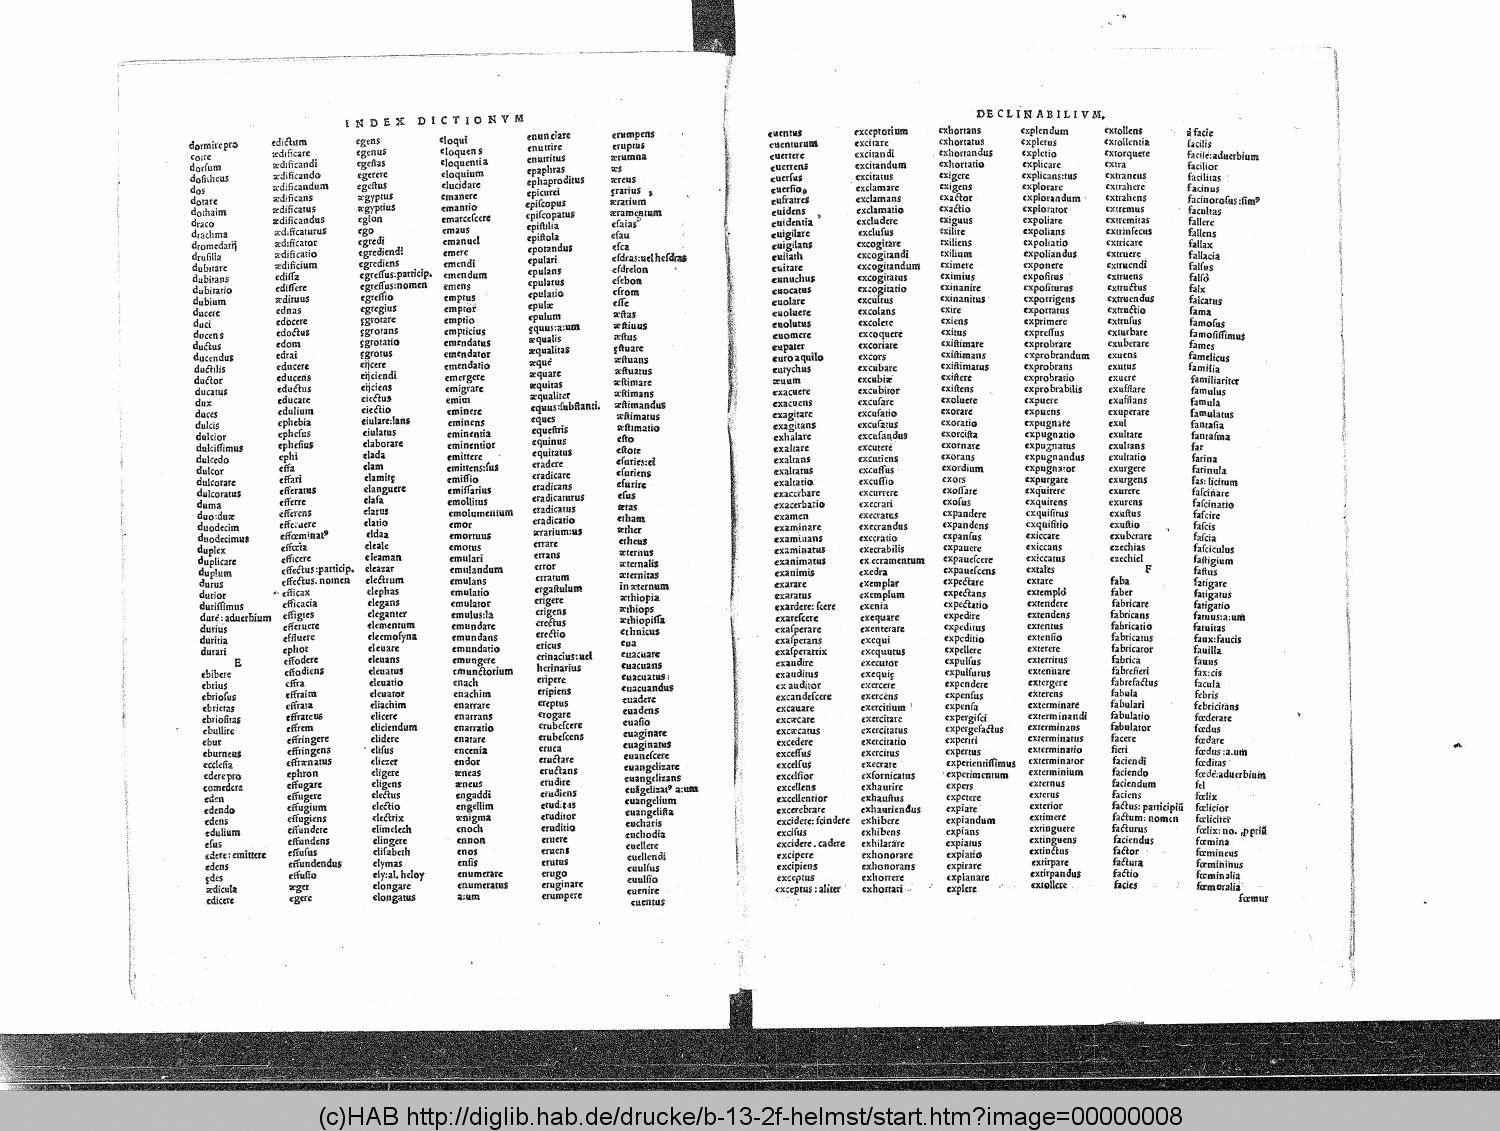 INDEX DICTIONVM
dormire pro
coire
dorſum
doſitheus
dos
dotare
dothaim
draco
drachma
dromedarij
druſilla
dubitare
dubitans
dubitatio
dubium
ducere
duci
ducens
ductus
ducendus
ductilis
ductor
ducatus
dux
duces
dulcis
dulcior
dulciſſimus
dulcedo
dulcor
dulcorare
dulcoratus
duma
duo:duæ
duodecim
duodecimus
duplex
duplicare
duplum
durus
durior
duriſſimus
durè: aduerbium
durius
duritia
durari
E
ebibere
ebrius
ebrioſus
ebrietas
ebrioſitas
ebullire
ebur
eburneus
eccleſia
edere pro
comedere
eden
edendo
edens
edulium
eſus
edere: emittere
edens
ędes
ædicula
edicere
edictum
ædificare
ædificandi
ædificando
ædificandum
ædificans
ædificatus
ædificandus
ædificaturus
ædificator
ædificatio
ædificium
ediſſa
ediſſere
ædituus
ednas
edocere
edoctus
edom
edrai
educere
educens
eductus
educare
edulium
ephebia
epheſus
epheſius
ephi
effa
effari
efferatus
efferre
efferens
efferuere
effœminatꝰ
effœta
efficere
effectus:particip.
effectus. nomen
efficax
efficacia
effigies
efferuere
effluere
ephot
effodere
effodiens
effra
effraim
effrata
effrateus
effrem
effringere
effringens
effrænatus
ephron
effugare
effugere
effugium
effugiens
effundere
effundens
effuſus
effundendus
effuſio
æger
egere
egens
egenus
egeſtas
egerere
egeſtus
ægyptus
ægyptius
eglon
ego
egredi
egrediendi
egrediens
egreſſus:particip.
egreſſus:nomen
egreſſio
egregius
ęgrotare
ęgrotans
ęgrotatio
ęgrotus
eijcere
eijciendi
eijciens
eiectus
eiectio
eiulare:lans
eiulatus
elaborare
elada
elam
elamitę
elanguere
elaſa
elatus
elatio
eldaa
eleale
eleaman
eleazar
electrum
elephas
elegans
eleganter
elementum
eleemoſyna
eleuare
eleuans
eleuatus
eleuatio
eleuator
eliachim
elicere
eliciendum
elidere
eliſus
eliezer
eligere
eligens
electus
electio
electrix
elimelech
elingere
eliſabeth
elymas
ely:al. heloy
elongare
elongatus
eloqui
eloquens
eloquentia
eloquium
elucidare
emanere
emantio
emarceſcere
emaus
emanuel
emere
emendi
emendum
emens
emptus
emptor
emptio
empticius
emendatus
emendator
emendatio
emergere
emigrare
emim
eminere
eminens
eminentia
eminentior
emittere
emittens:ſus
emiſſio
emiſſarius
emollitus
emolumentum
emor
emortuus
emotus
emulari
emulandum
emulans
emulatio
emulator
emulus:la
emundare
emundans
emundatio
emungere
emunctorium
enach
enachim
enarrare
enarrans
enarratio
enatare
encenia
endor
æneas
æneus
engaddi
engellim
ænigma
enoch
ennon
enos
enſis
enumerare
enumeratus
a:um
enunciare
enutrire
enutritus
epaphras
ephaproditus
epicurei
epiſcopus
epiſcopatus
epiſtilia
epiſtola
epotandus
epulari
epulans
epulatus
epulatio
epulæ
epulum
ęquus:a:um
æqualis
æqualitas
æquè
æquare
æquitas
æqualiter
equus:ſubſtanti.
eques
equeſtris
equinus
equitatus
eradere
eradicare
eradicans
eradicaturus
eradicatus
eradicatio
ærarium:us
errare
errans
error
erratum
ergaſtulum
erigere
erigens
erectus
erectio
ericus
erinacius:uel
herinarius
eripere
eripiens
ereptus
erogare
erubeſcere
erubeſcens
eruca
eructare
eructans
erudire
erudiens
eruditus
eruditor
eruditio
eruere
eruens
erutus
erugo
eruginare
erumpere
erumpens
eruptus
ærumna
æs
æreus
ęrarius
ærarium
æramentum
eſaias
eſau
eſca
eſdras:uel heſdras
eſdrelon
eſebon
eſrom
eſſe
æſtas
æſtiuus
æſtus
ęſtuare
æſtuans
æſtuatus
æſtimare
æſtimans
æſtimandus
æſtimatus
æſtimatio
eſto
eſtote
eſuries:ei
eſuriens
eſurire
eſus
ætas
etham
æther
etheus
æternus
æternalis
æternitas
in æternum
æthiopia
æthiops
æthiopiſſa
ethnicus
eua
euacuare
euacuans
euacuatus
euacuandus
euadere
euadens
euaſio
euaginare
euaginatus
euaneſcere
euangelizare
euangelizans
euāgelizatꝰ a:um
euangelium
euangeliſta
eucharis
euchodia
euellere
euellendi
euulſus
euulſio
euenire
euentus
DECLINABILIVM.
euentus
euenturum
euertere
euertens
euerſus
euerſio
eufrates
euidens
euidentia
euigilare
euigilans
euilath
euitare
eunuchus
euocatus
euolare
euoluere
euolutus
euomere
eupater
euroaquilo
eutychus
æuum
exacuere
exacuens
exagitare
exagitans
exhalare
exaltare
exaltans
exaltatus
exaltatio
exacerbare
exacerbatio
examen
examinare
examinans
examinatus
exanimatus
exanimis
exarare
exaratus
exardere: ſcere
exareſcere
exaſperare
exaſperans
exaſperatrix
exaudire
exauditus
exauditor
excandeſcere
excauare
excæcare
excæcatus
excedere
exceſſus
excelſus
excelſior
excellens
excellentior
excerebrare
excidere: ſcindere
exciſus
excidere. cadere
excipere
excipiens
exceptus
exceptus: aliter
exceptorium
excitare
excitandi
excitandum
excitatus
excludere
exclamare
exclamans
exclamatio
excluſus
excogitare
excogitandi
excogitandum
excogitatus
excogitatio
excultus
excolans
excolere
excoquere
excoriare
excors
excubare
excubiæ
excubitor
excuſare
excuſatio
excuſatus
excuſandus
excutere
excutiens
excuſſus
excuſſio
excurrere
execrari
execratus
execrandus
execratio
execrabilis
execramentum
exedra
exemplar
exemplum
exenia
exequare
exenterare
exequi
exequutus
executor
exequię
exercere
exercens
exercitium
exercitare
exercitatus
exercitatio
exercitus
execrare
exfornicatus
exhaurire
exhauſtus
exhauriendus
exhibere
exhibens
exhilarare
exhonorare
exhonorans
exhorrere
exhortari
exhortans
exhortatus
exhortandus
exhortatio
exigere
exigens
exactor
exactio
exiguus
exilire
exiliens
exilium
eximere
eximius
exinanire
exinanitus
exire
exiens
exitus
exiſtimare
exiſtimans
exiſtimatus
exiſtere
exiſtens
exoluere
exorare
exoratio
exorciſta
exornare
exorans
exordium
exors
exoſſare
exoſus
expandere
expandens
expanſus
expauere
expaueſcere
expaueſcens
expectare
expectans
expectatio
expedire
expeditus
expeditio
expellere
expulſus
expulſurus
expendere
expenſus
expenſa
expergiſci
expergefactus
experiri
expertus
experientiſſimus
experimentum
expers
expetere
expiare
expiandum
expians
expiatus
expiatio
expirare
explanare
explere
explendum
expletus
expletio
explicare
explicans:tus
explorare
explorandum
explorator
expoliare
expolians
expoliatio
expoliandus
exponere
expoſitus
expoſiturus
exporrigens
exportatus
exprimere
expreſſus
exprobrare
exprobrandum
exprobrans
exprobratio
exprobrabilis
expuere
expuens
expugnare
expugnatio
expugnatus
expugnandus
expugnator
expurgare
exquirere
exquirens
exquiſitus
exquiſitio
exiccare
exiccans
exiccatus
extales
extare
extemplò
extendere
extendens
extentus
extenſio
exterere
exterritus
extenuare
extergere
exterens
exterminare
exterminandi
exterminans
exterminatus
exterminatio
exterminator
exterminium
externus
exterus
exterior
extimere
extinguere
extinguens
extinctus
extirpare
extirpandus
extollere
extollens
extollentia
extorquere
extra
extraneus
extrahere
extrahens
extremus
extremitas
extrinſecus
extricare
extruere
extruendi
extruens
extructus
extruendus
extructio
extruſus
exturbare
exuberare
exuens
exutus
exuere
exufflare
exufflans
exuperare
exul
exultare
exultans
exultatio
exurgere
exurgens
exurere
exurens
exuſtus
exuſtio
exuberare
ezechias
ezechiel
F
faba
faber
fabricare
fabricans
fabricatio
fabricatus
fabricator
fabrica
fabrefieri
fabrefactus
fabula
fabulari
fabulatio
fabulator
facere
fieri
faciendi
faciendo
faciendum
faciens
factus: participiū
factum: nomen
facturus
faciendus
factor
factura
factio
facies
à facie
facilis
facilè:aduerbium
facilior
facilitas
facinus
facinoroſus:ſimꝰ
facultas
fallere
fallens
fallax
fallacia
falſus
falſò
falx
falcatus
fama
famoſus
famoſiſſimus
fames
famelicus
familia
familiariter
famulus
famula
famulatus
fantaſia
fantaſma
far
farina
farinula
fas: licitum
faſcinare
faſcinatio
faſcire
faſcis
faſcia
faſciculus
faſtigium
faſtus
fatigare
fatigatus
fatigatio
fatuus:a:um
fatuitas
faux:faucis
fauilla
fauus
fax:cis
facula
febris
febricitans
fœderare
fœdus
fœdare
fœdus:a.um
fœditas
fœdè:aduerbium
fel
fœlix
fœlicior
fœliciter
fœlix: no. ꝓpriū
fœmina
fœmineus
fœmininus
fœminalia
fœmoralia
fœmur
(c)HAB http://diglib.hab.de/drucke/b-13-2f-helmst/start.htm?image=00000008